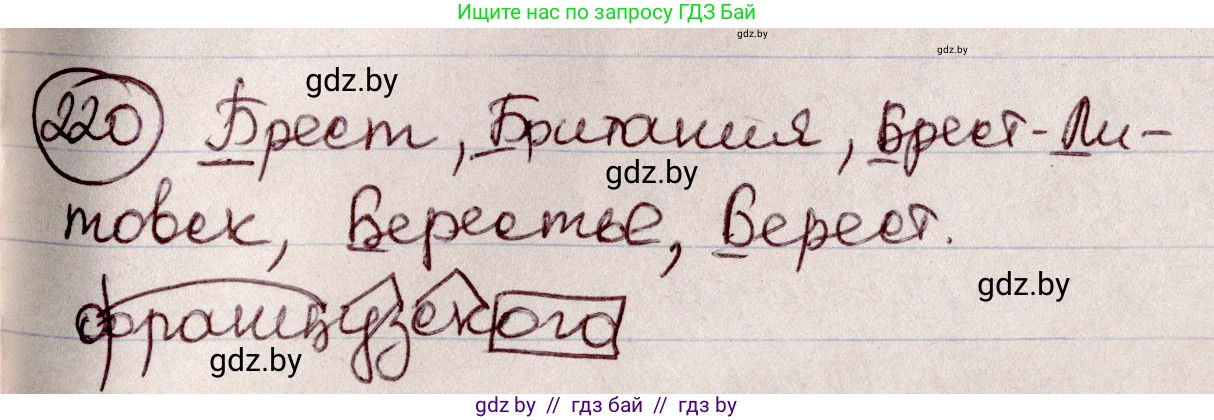 Ищите нас по запросу ГДЗ Бай
gdz.by
gdz.by
gdz.by
220 Брест, Британия, Брест-Ли-
gdz.by
товск, Берестье, Берест.
gdz.by
французского
gdz.by
gdz by // гдз бай // gdz by